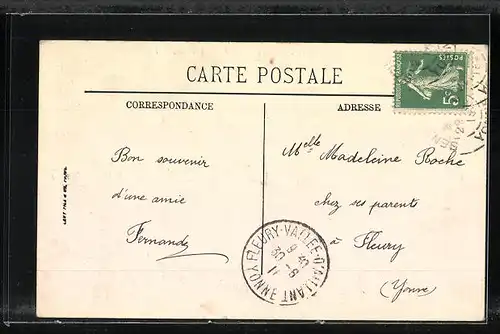 CARTE POSTALE
CORRESPONDANCE
ADRESSE
Bon souvenir
d'une amie
Fernande
Melle Madeleine Roche
chez ses parents
à Fleury
(Yonne)
FLEURY-VALLÉE-D'AILLANT YONNE
POSTES
5c